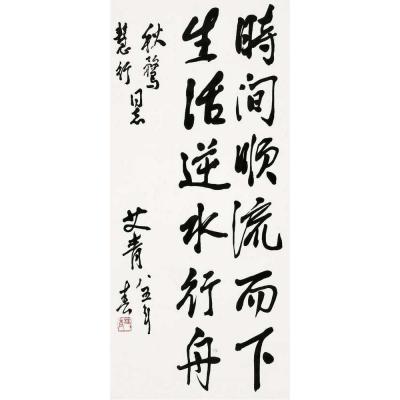 時间顺流而下
生活逆水行舟
秋鹜
慧行同志
艾青 八五年
春